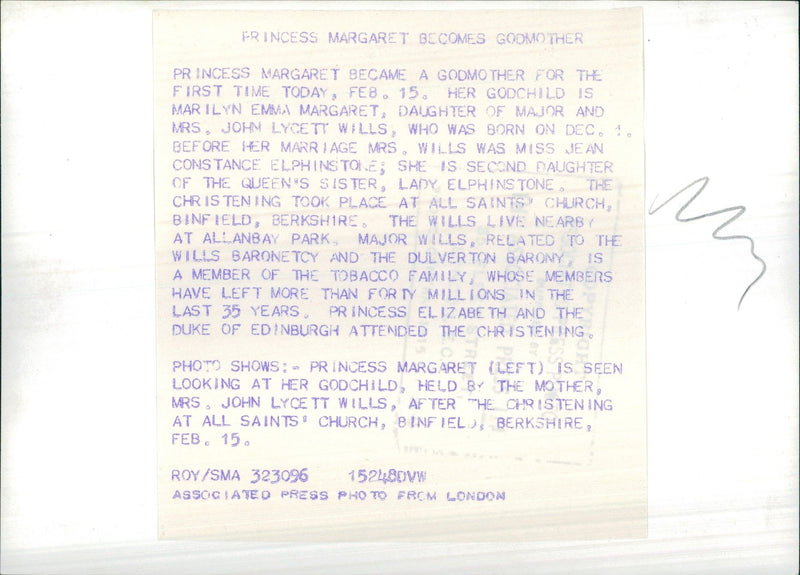 PRINCESS MARGARET BECOMES GODMOTHER
PRINCESS MARGARET BECAME A GODMOTHER FOR THE
FIRST TIME TODAY, FEB. 15. HER GODCHILD IS
MARILYN EMMA MARGARET, DAUGHTER OF MAJOR AND
MRS. JOHN LYCETT WILLS, WHO WAS BORN ON DEC. 1.
BEFORE HER MARRIAGE MRS. WILLS WAS MISS JEAN
CONSTANCE ELPHINSTONE; SHE IS SECOND DAUGHTER
OF THE QUEEN"S SISTER, LADY ELPHINSTONE. THE
CHRISTENING TOOK PLACE AT ALL SAINTS' CHURCH,
BINFIELD, BERKSHIRE. THE WILLS LIVE NEARBY
AT ALLANBAY PARK. MAJOR WILLS, RELATED TO THE
WILLS BARONETCY AND THE DULVERTON BARONY, IS
A MEMBER OF THE TOBACCO FAMILY, WHOSE MEMBERS
HAVE LEFT MORE THAN FORTY MILLIONS IN THE
LAST 35 YEARS. PRINCESS ELIZABETH AND THE
DUKE OF EDINBURGH ATTENDED THE CHRISTENING.
PHOTO SHOWS:- PRINCESS MARGARET (LEFT) IS SEEN
LOOKING AT HER GODCHILD, HELD BY THE MOTHER,
MRS. JOHN LYCETT WILLS, AFTER THE CHRISTENING
AT ALL SAINTS' CHURCH, BINFIELD, BERKSHIRE,
FEB. 15.
ROY/SMA 323096 15248DVW
ASSOCIATED PRESS PHOTO FROM LONDON